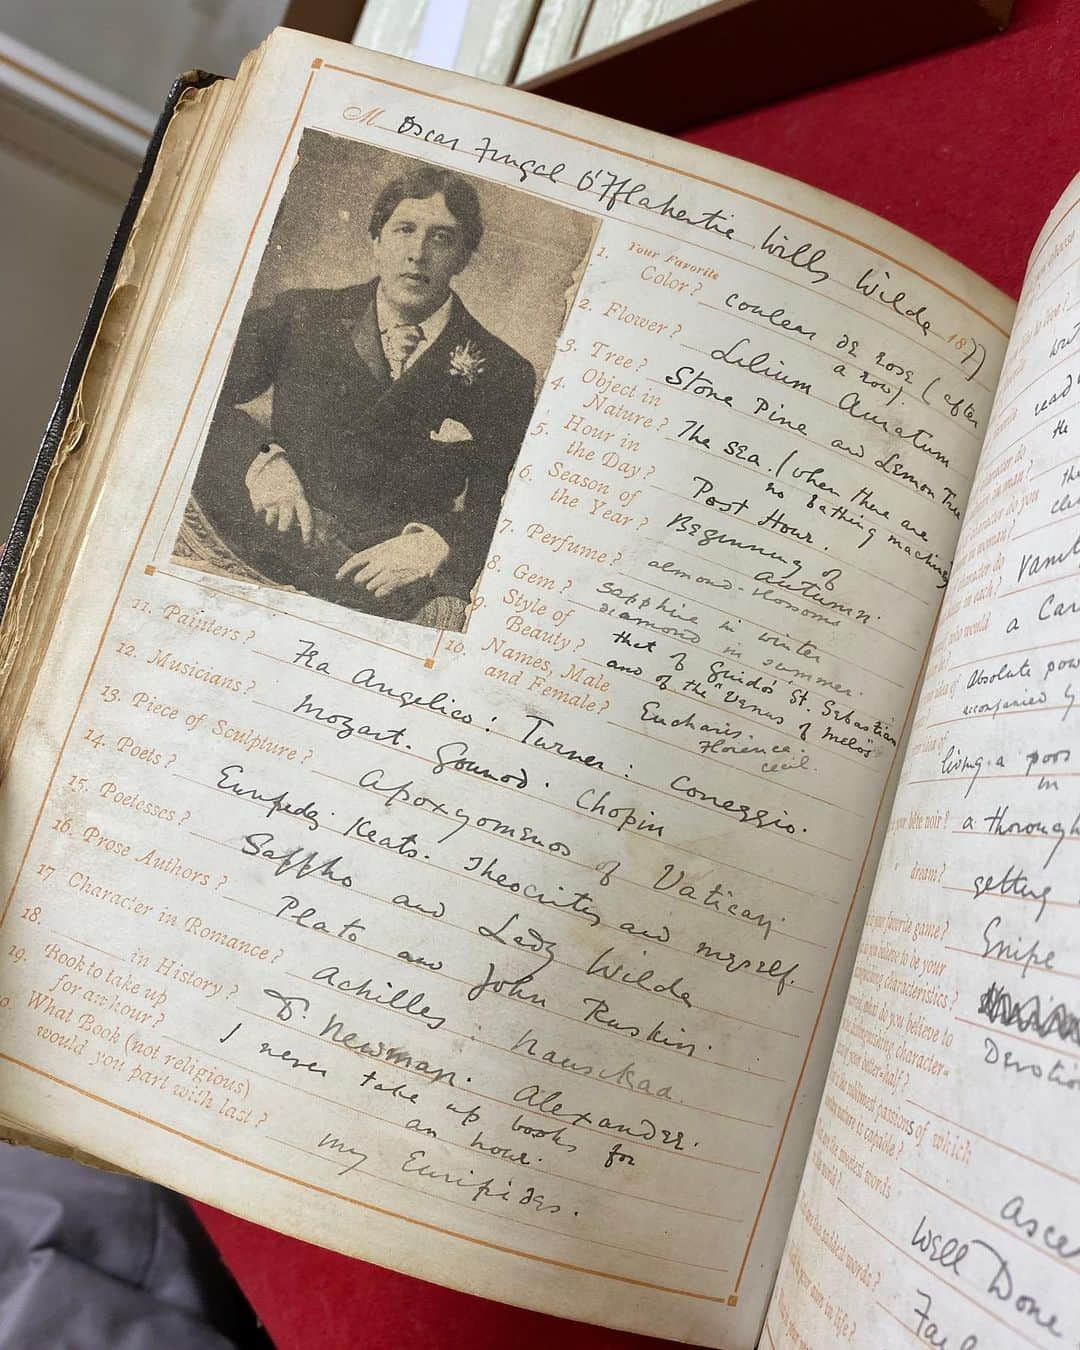 M Oscar Fingal O'Fflahertie Wills Wilde 1877
Your Favorite
1. Color? couleur de rose (after
a row).
2. Flower? Lilium Auratum
3. Tree? Stone Pine and Lemon Tree
4. Object in
Nature? The sea. (when there are
no bathing machines
5. Hour in
the Day? Post Hour.
6. Season of
the Year? Beginning of
autumn.
7. Perfume? almond-blossoms
8. Gem? Sapphire in winter
diamond in summer.
9. Style of
Beauty? that of Guido's St. Sebastian
and of the "Venus of Melos"
10. Names, Male
and Female? Eucharis.
Florence.
Cecil.
11. Painters? Fra Angelico: Turner: Coreggio.
12. Musicians? Mozart. Gounod. Chopin
13. Piece of Sculpture? Apoxyomenos of Vatican
14. Poets? Euripedes. Keats. Theocritus and myself.
15. Poetesses? Sappho and Lady Wilde
16. Prose Authors? Plato and John Ruskin.
17 Character in Romance? Achilles: Nausikaa.
18. in History? Dr. Newman. Alexander.
19. Book to take up
for an hour? I never take up books for
an hour.
What Book (not religious)
would you part with last? my Euripides.
read
the
vanit
a Car
Absolute pow
accompanied by
living a poor
in
bête noir? a thorough
dream? getting
your favorite game? Snipe
believe to be your
characteristics?
what do you believe to
distinguishing character-
Devotio
passions of which
is capable?
sweetest words
Well Done
saddest words?
Fail